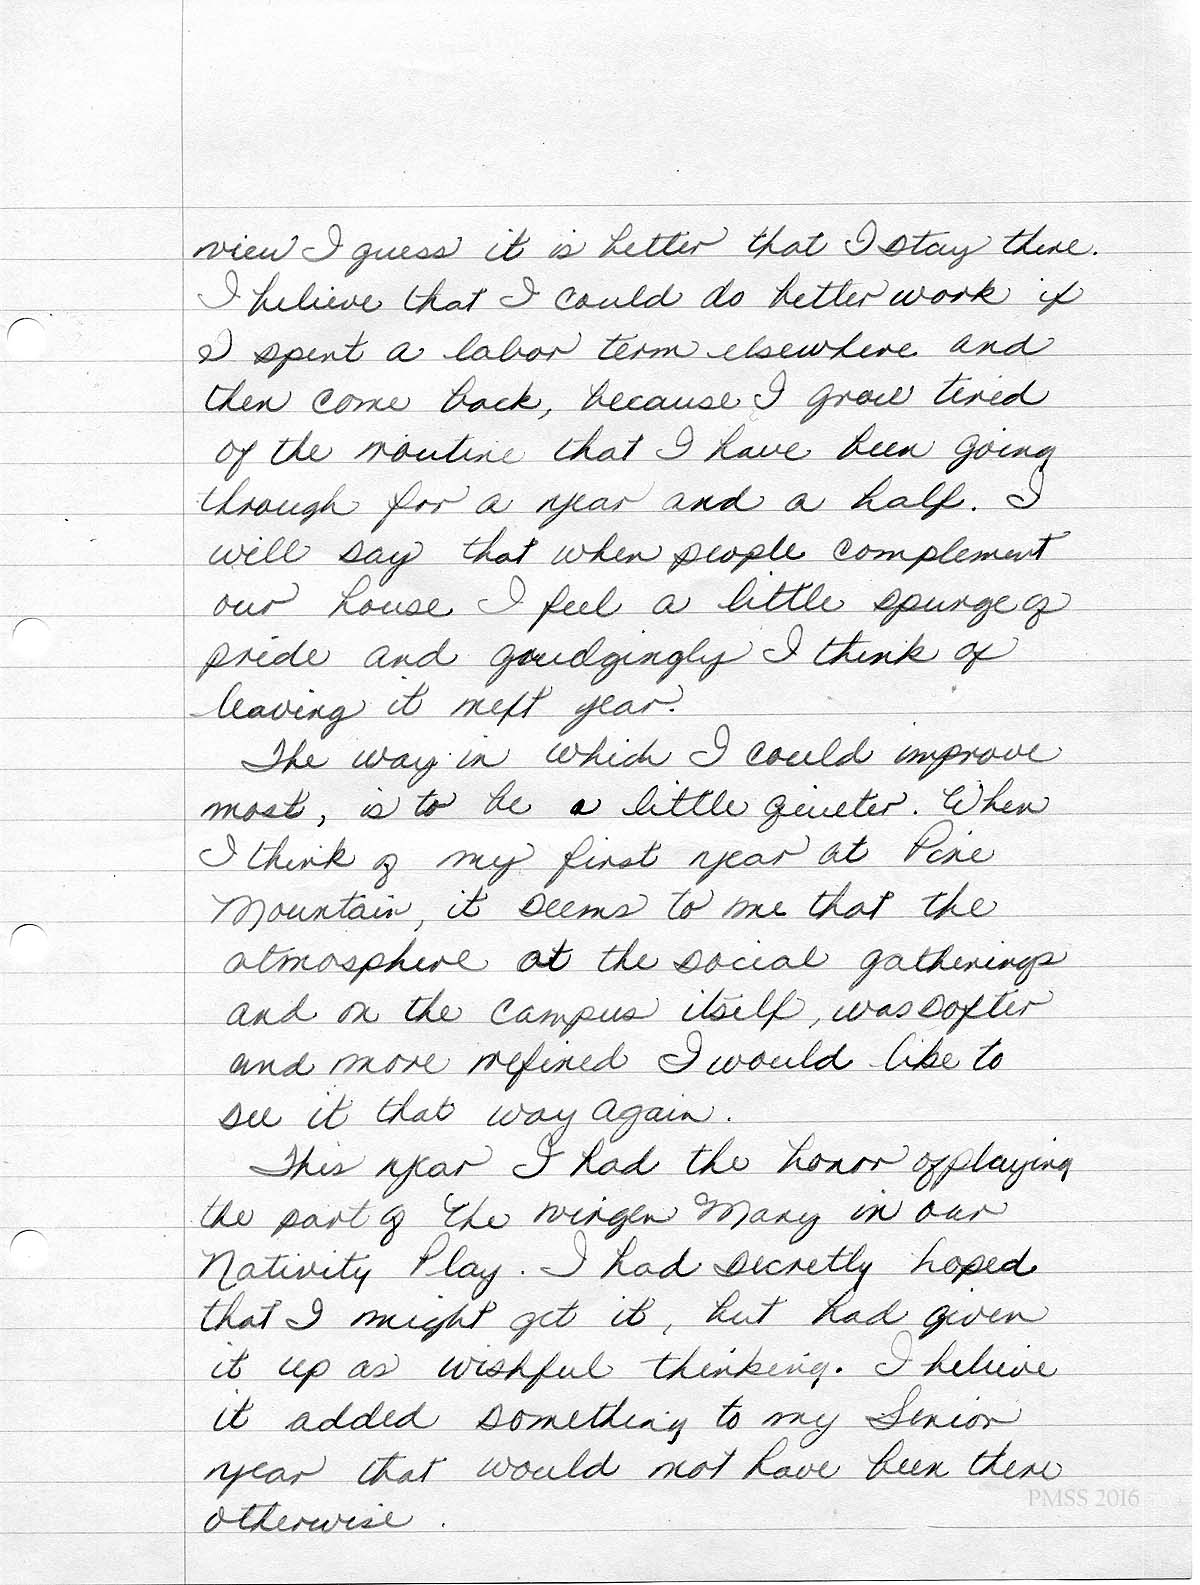 view I guess it is better that I stay there.
I believe that I could do better work if
I spent a labor term elsewhere and
then come back, because I grow tired
of the routine that I have been going
through for a year and a half. I
will say that when people complement
our house I feel a little spurge of
pride and goudgingly I think of
leaving it next year.
The way in which I could improve
most, is to be a little qiueter. When
I think of my first year at Pine
Mountain, it seems to me that the
atmosphere at the social gatherings
and on the campus itself, was softer
and more refined I would like to
see it that way again.
This year I had the honor of playing
the part of The virgen Mary in our
Nativity Play. I had secretly hoped
that I might get it, but had given
it up as wishful thinking. I believe
it added something to my Senior
year that would not have been there
PMSS 2016
otherwise.